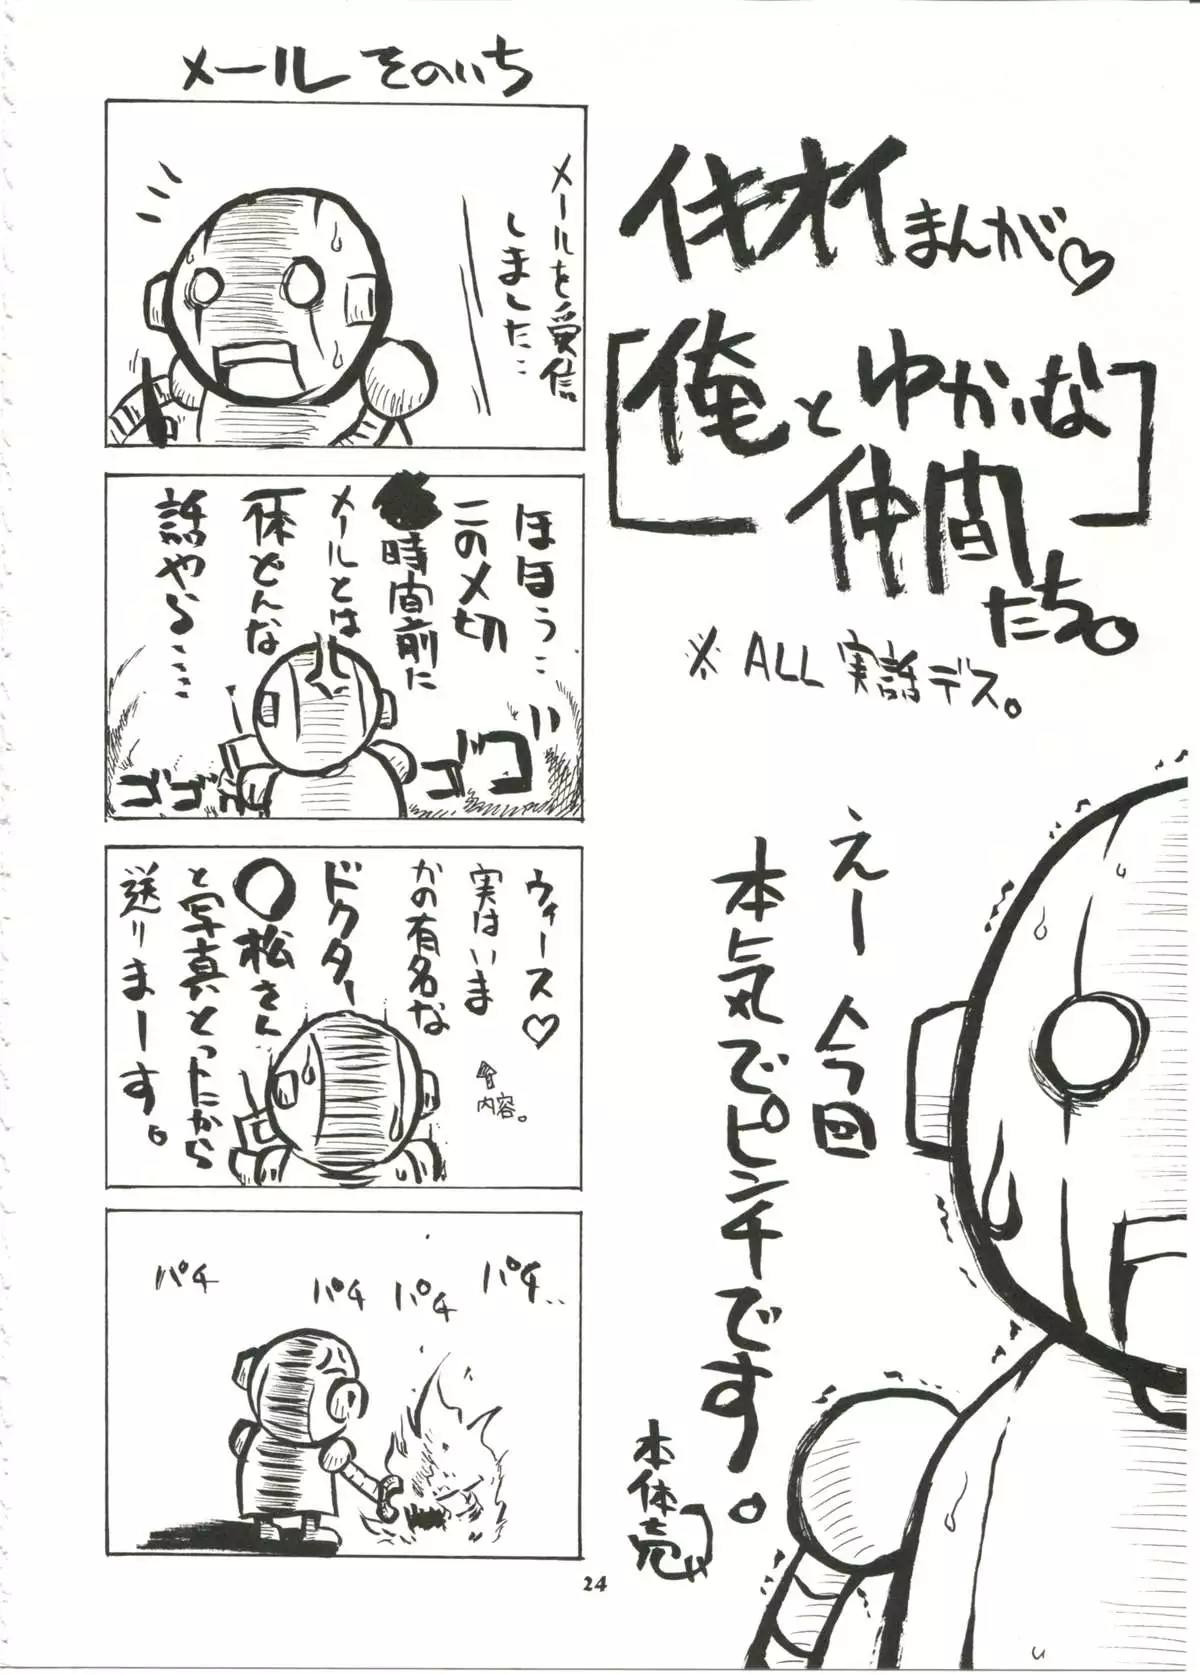 イキオイまんが♡
「俺とゆかいな
仲間たち。」
※ALL実話デス。
えー今回
本気でピンチです。
本体
メール そのいち
メールを受信
しました…
ほほう…
この〆切
時間前に
メールとは
一体どんな
話やろ……
ゴゴゴ
ゴゴゴ
ウィース♡
実はいま
かの有名な
ドクター
〇松さん
と写真とったから
送りまーす。
内容。
パチ
パチ
パチ
パチ…
24